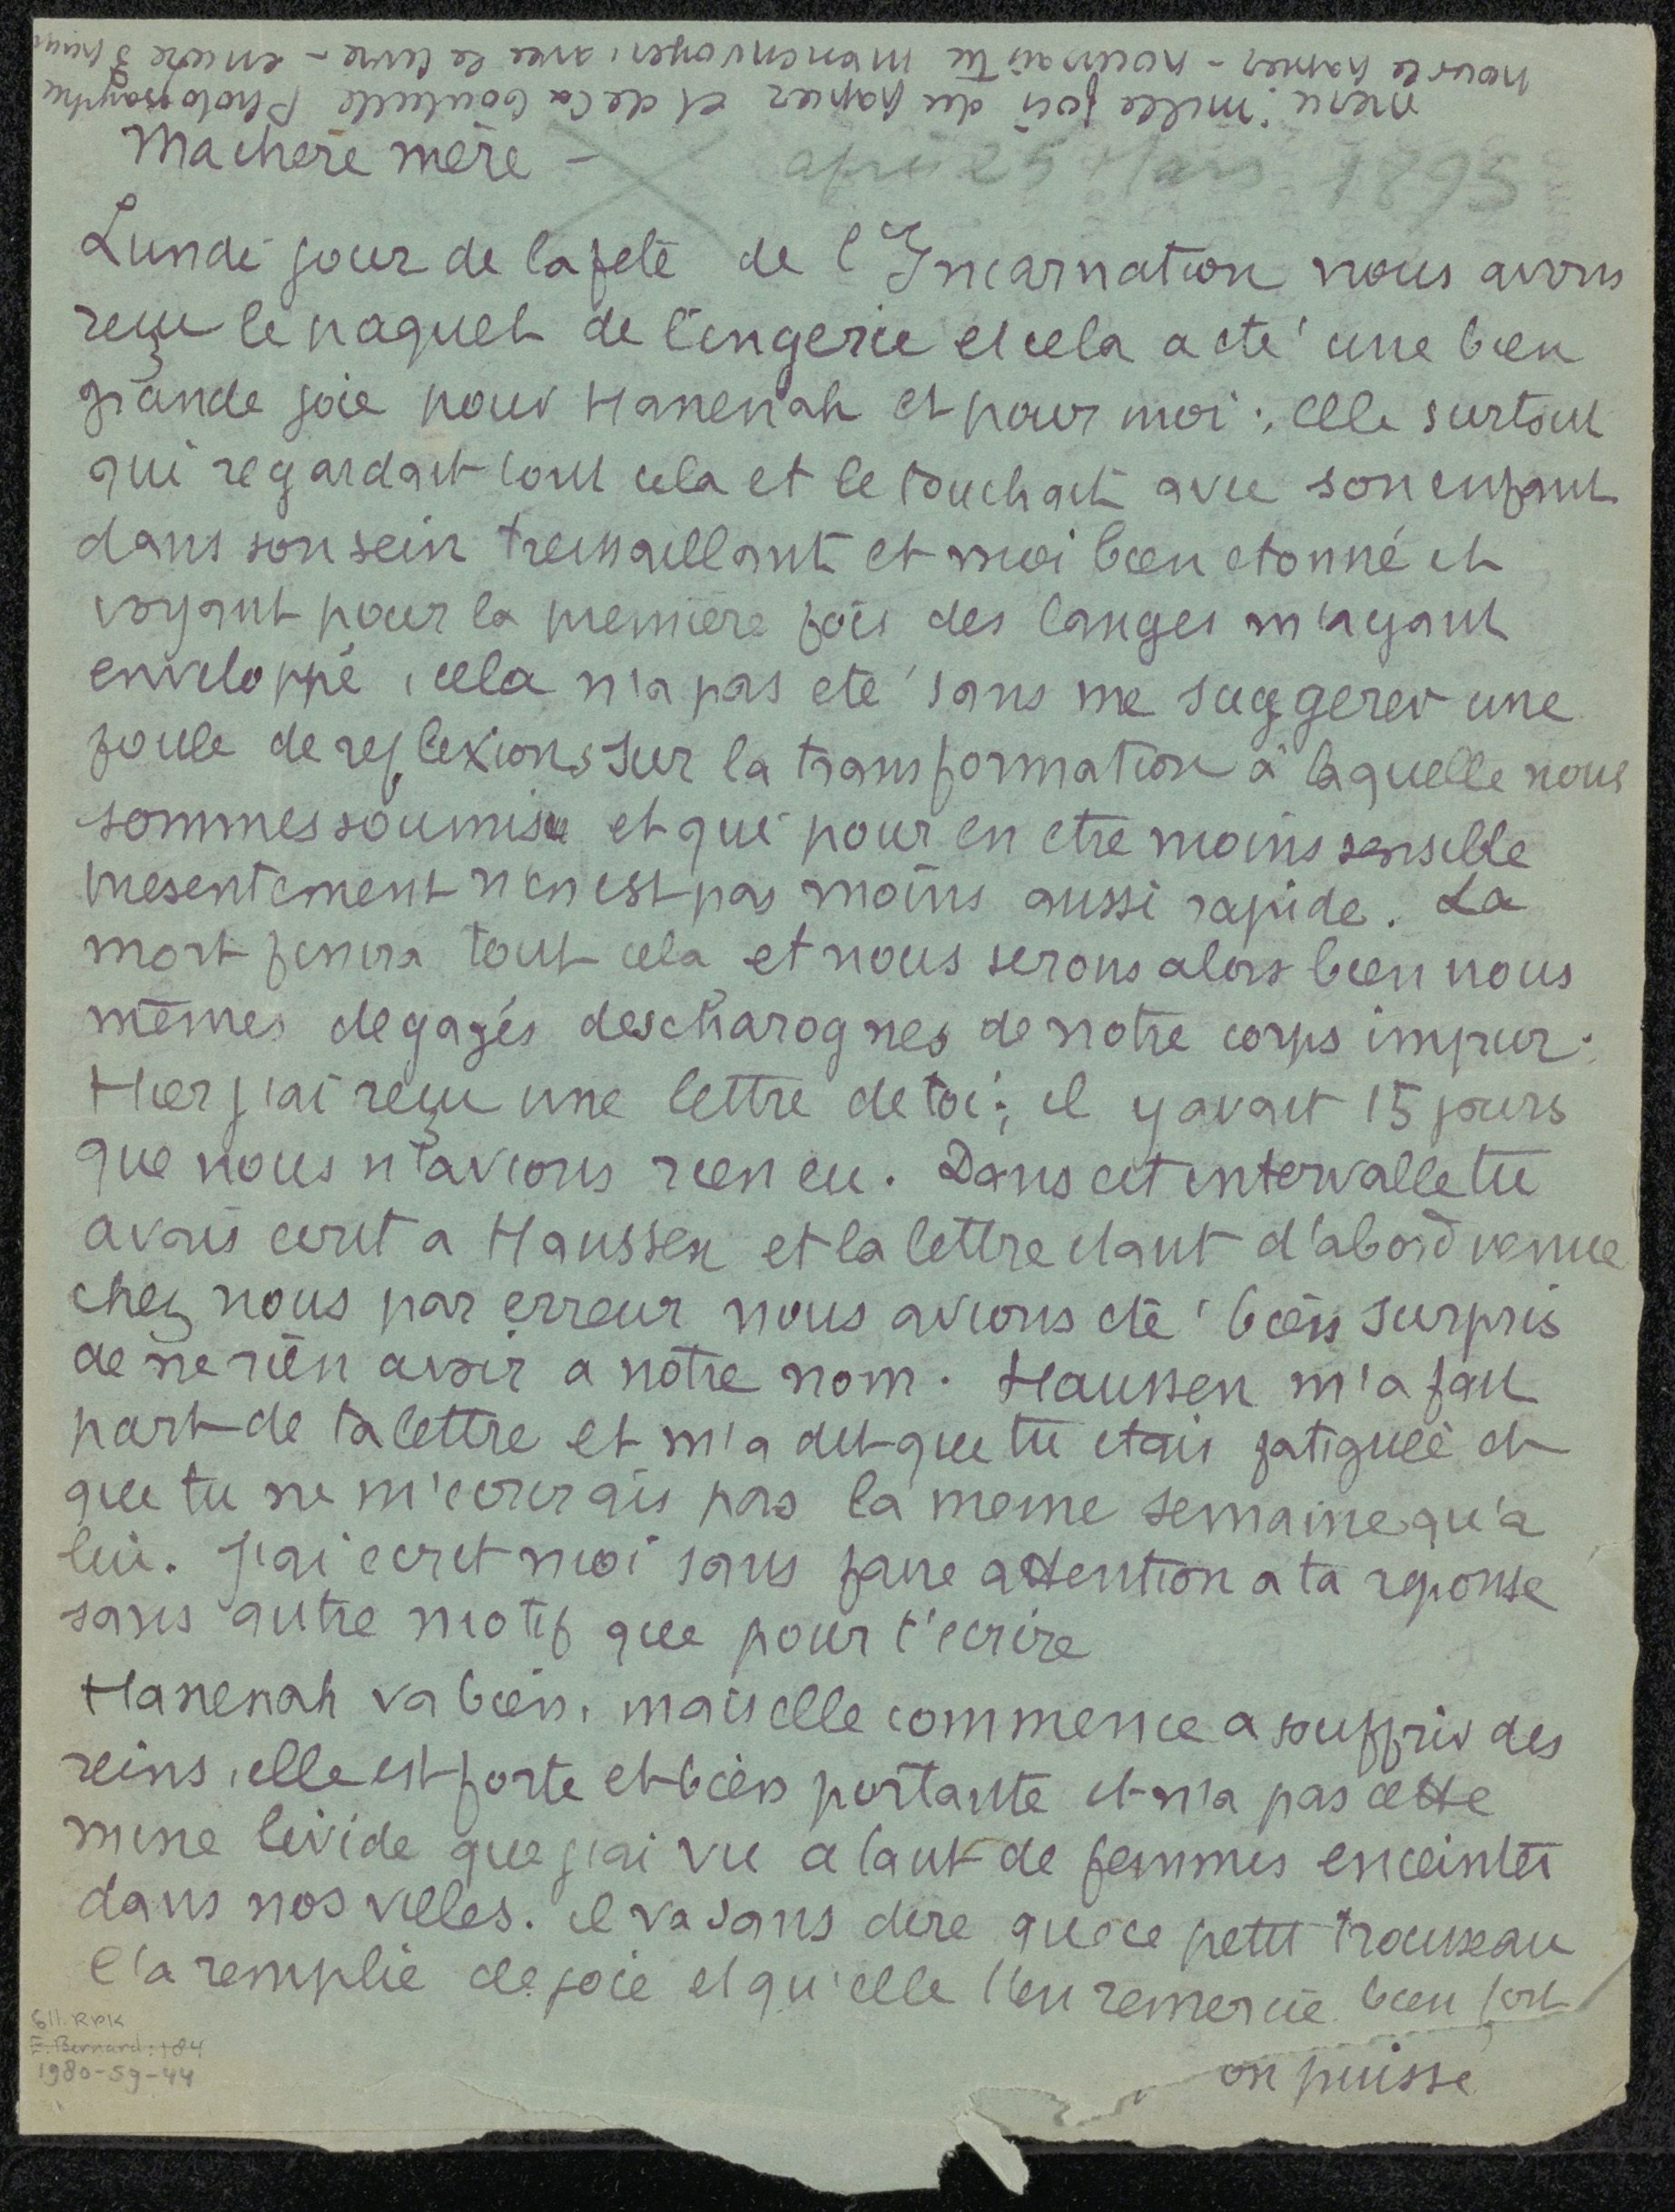 merci mille fois du papier et de la bouteille Photographie
pour le papier - pourrais tu m'en envoyer, avec le livre - encore 3
Ma chere mère -
après 25 Mars 1895
Lundi jour de la fete de l'Incarnation nous avons
reçu le paquet de lingerie et cela a eté une bien
grande joie pour Hanenah et pour moi ; elle surtout
qui regardait tout cela et le touchait avec son enfant
dans son sein tressaillant et moi bien etonné et
voyant pour la première fois des langes m'ayant
enveloppé, cela n'a pas eté sans me suggerer une
foule de reflexions sur la transformation à laquelle nous
sommes soumis et qui pour en etre moins sensible
presentement n'en est pas moins aussi rapide. La
mort finira tout cela et nous serons alors bien nous
mêmes degagés des charognes de notre corps impur.
Hier j'ai reçu une lettre de toi ; il y avait 15 jours
que nous n'avions rien eu. Dans cet intervalle tu
avais ecrit a Haussen et la lettre etant d'abord venue
chez nous par erreur nous avions eté bien surpris
de ne rien avoir a notre nom. Haussen m'a fait
part de ta lettre et m'a dit que tu etais fatiguée et
que tu ne m'ecrirais pas la meme semaine qu'a
lui. J'ai ecrit moi sans faire attention a ta reponse
sans autre motif que pour t'ecrire
Hanenah va bien, mais elle commence a souffrir des
reins, elle est forte et bien portante et n'a pas cette
mine livide que j'ai vu a tant de femmes enceintes
dans nos villes. il va sans dire que ce petit trousseau
l'a remplie de joie et qu'elle t'en remercie bien fort
on puisse
Gll. RPK
E. Bernard: 184
1980-59-44